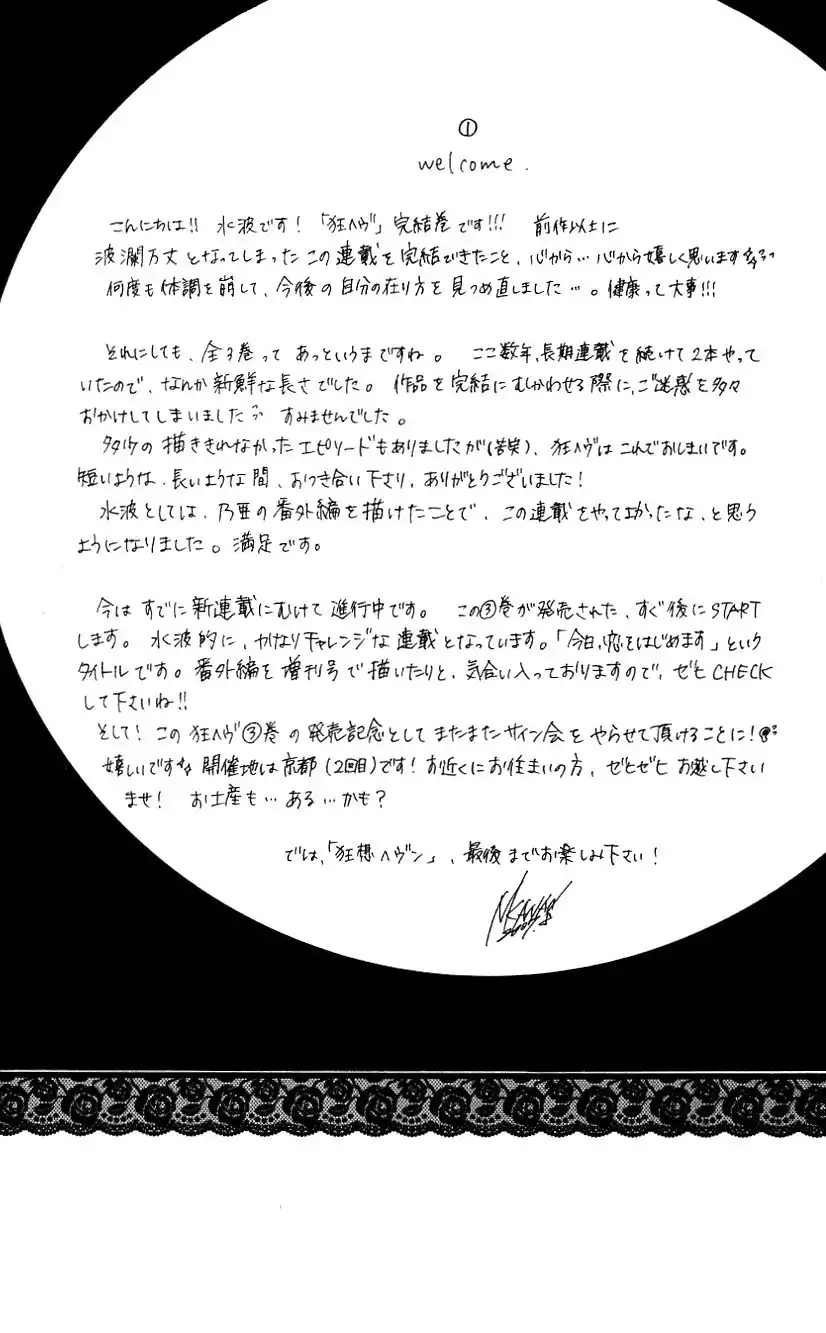 ①
welcome.
こんにちは!! 水波です! 「狂ヘヴ」完結巻です!!! 前作以上に
波瀾万丈となってしまったこの連載を完結できたこと、心から…心から嬉しく思います
何度も体調を崩して、今後の自分の在り方を見つめ直しました…。健康って大事!!!
それにしても、全3巻ってあっというまですね。 ここ数年、長期連載を続けて2本やって
いたので、なんか新鮮な長さでした。作品を完結にむかわせる際に、ご迷惑を多々
おかけしてしまいました すみませんでした。
タタウの描ききれなかったエピソードもありましたが(苦笑)、狂ヘヴはこれでおしまいです。
短いような、長いような間、おつき合い下さり、ありがとうございました!
水波としては、乃亜の番外編を描けたことで、この連載をやってよかったな、と思う
ようになりました。満足です。
今はすでに新連載にむけて進行中です。 この③巻が発売された、すぐ後にSTART
します。水波的に、かなりチャレンジな連載となっています。「今日、恋をはじめます」という
タイトルです。番外編を増刊号で描いたりと、気合い入っておりますので、ぜひCHECK
して下さいね!!
そして! この狂ヘヴ③巻の発売記念としてまたまたサイン会をやらせて頂けることに!
嬉しいですな 開催地は京都(2回目)です! お近くにお住まいの方、ぜひぜひお越し下さい
ませ! お土産も…ある…かも?
では、「狂想ヘヴン」、最後までお楽しみ下さい!